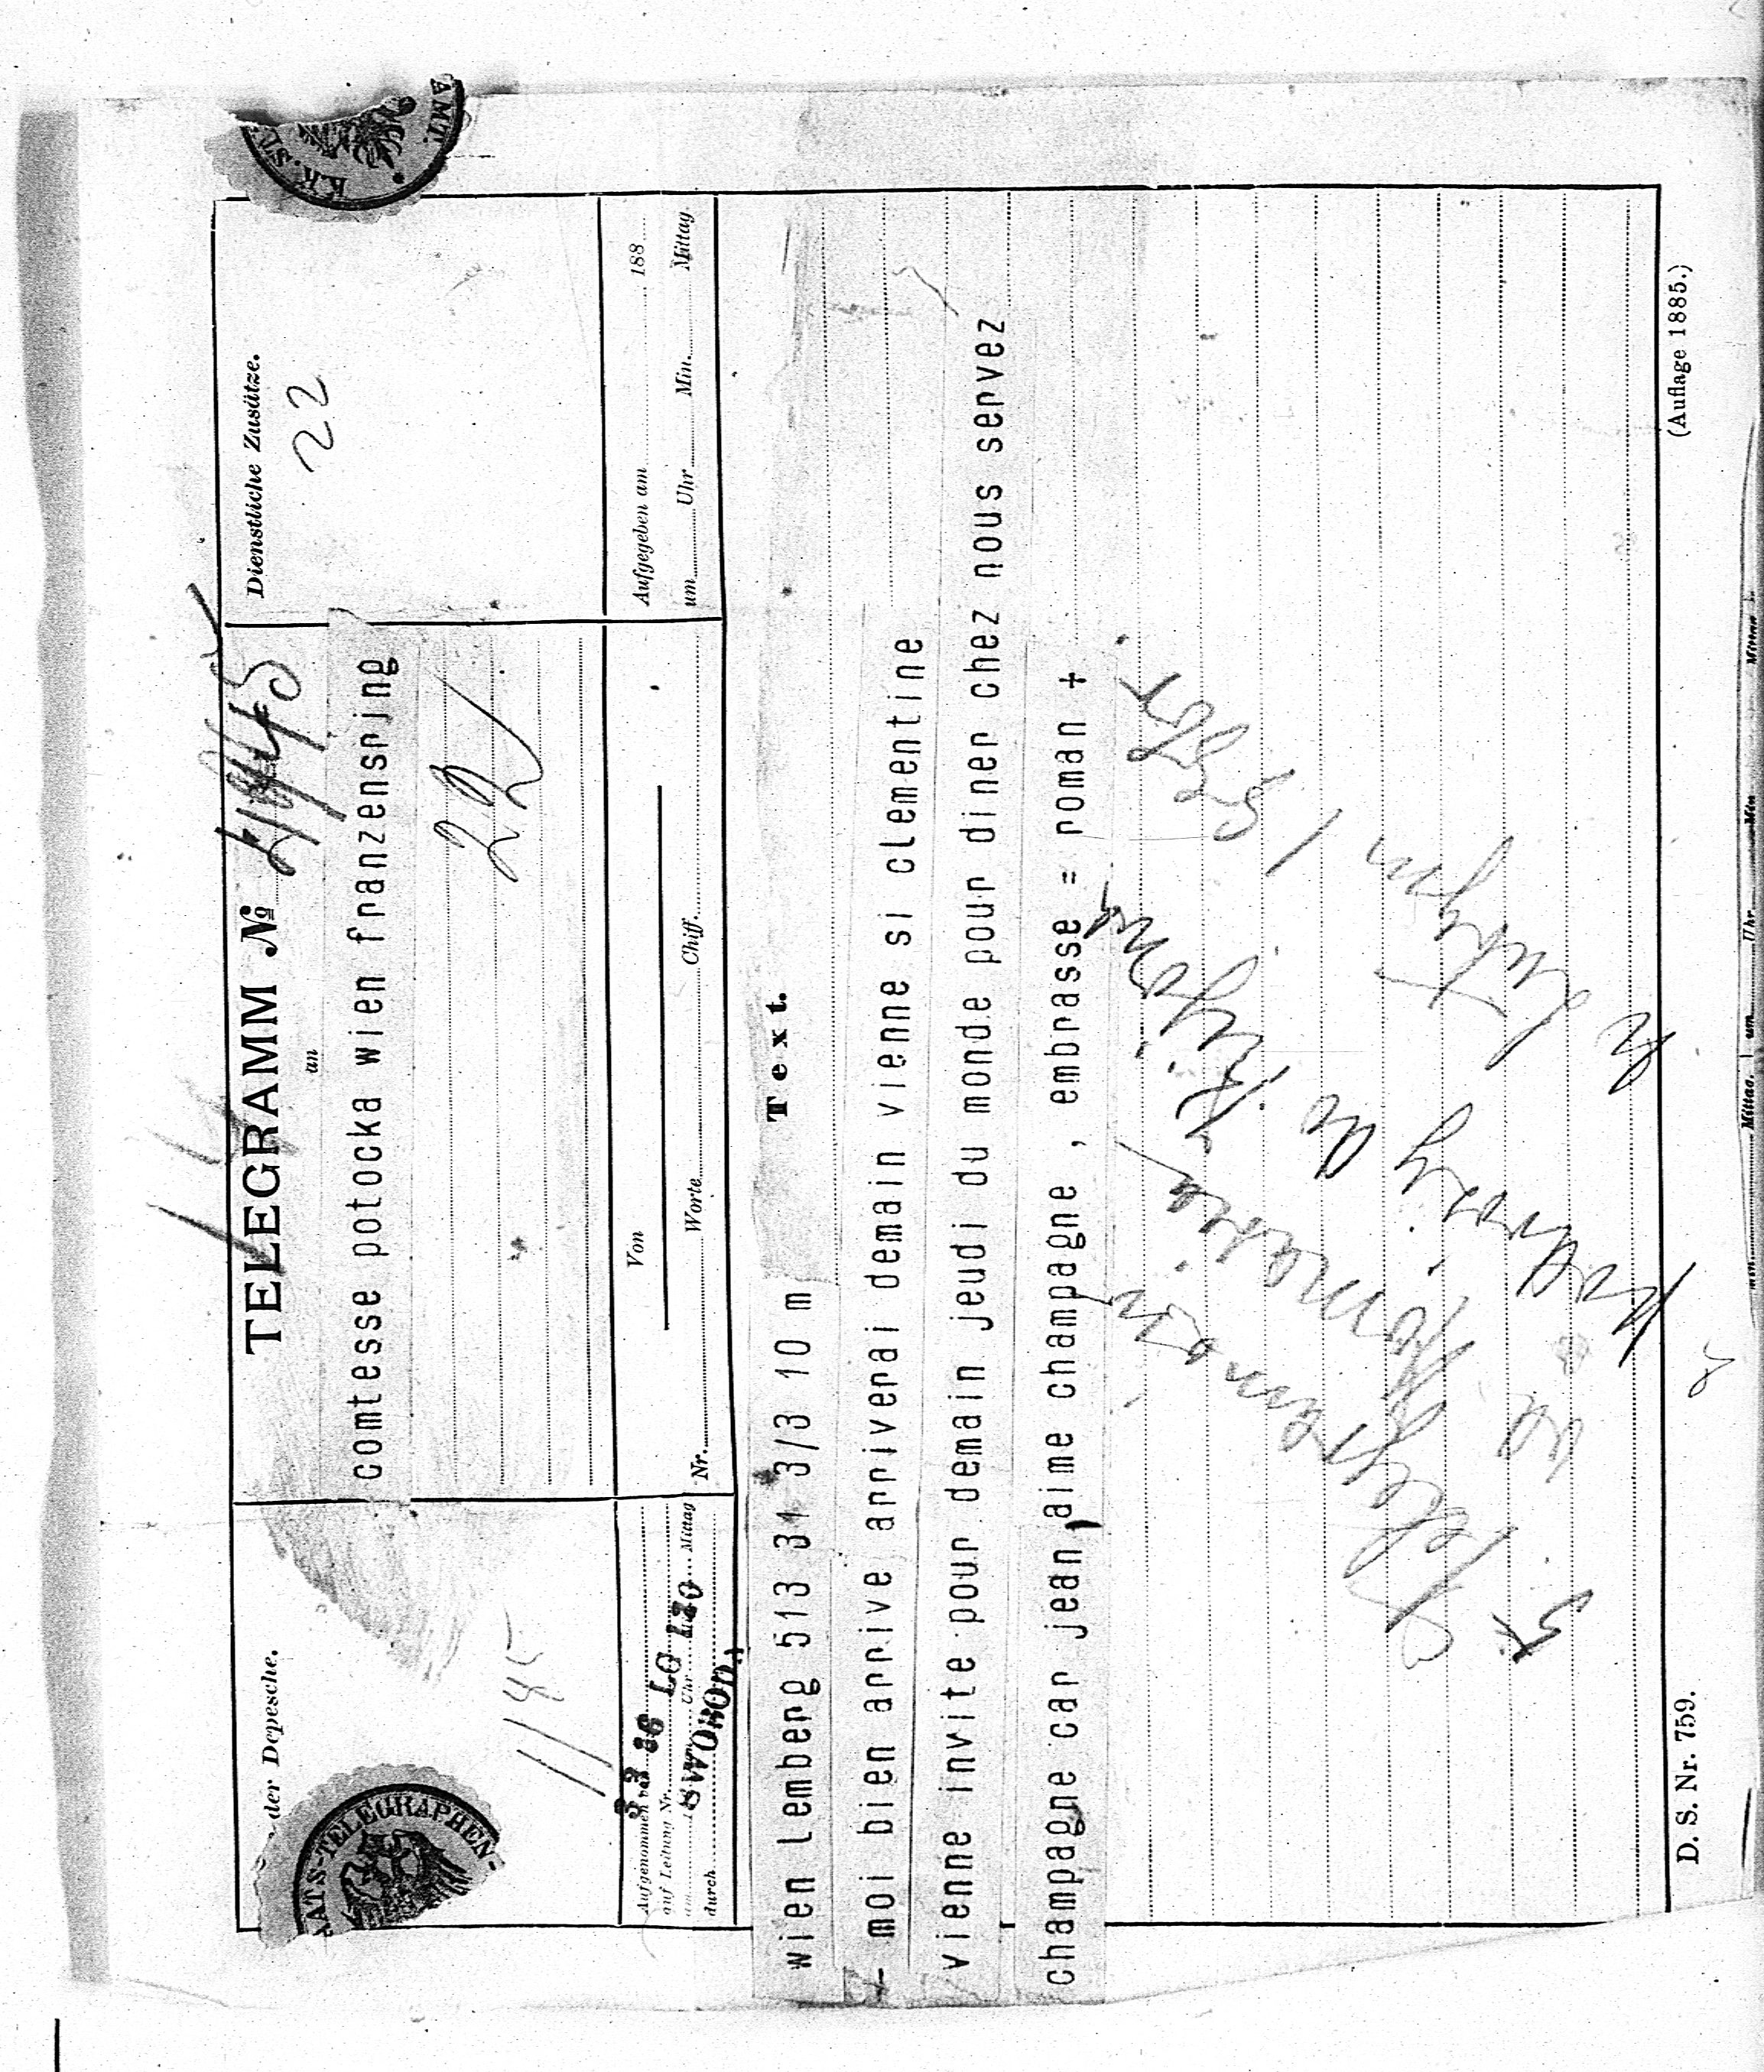 der Depesche.
TELEGRAMM №
4445
an
Dienstliche Zusätze.
22
K.K. ST
AATS-TELEGRAPHEN-
AMT.
comtesse potocka wien franzensring
22
1145
Aufgenommen
auf Leitung Nr.
Uhr Mittag
durch
3 3 86 LG 120
SWOBODA
Von
Nr. Worte Chiff.
Aufgegeben am 188
um Uhr Min. Mittag
Text.
wien lemberg 513 31 3/3 10 m
- moi bien arrive arriverai demain vienne si clementine
vienne invite pour demain jeudi du monde pour diner chez nous servez
champagne car jean, aime champagne , embrasse = roman +
Telegram
Romana
do
D. S. Nr. 759.
(Auflage 1885.)
Mittag. um Uhr Min Mittag